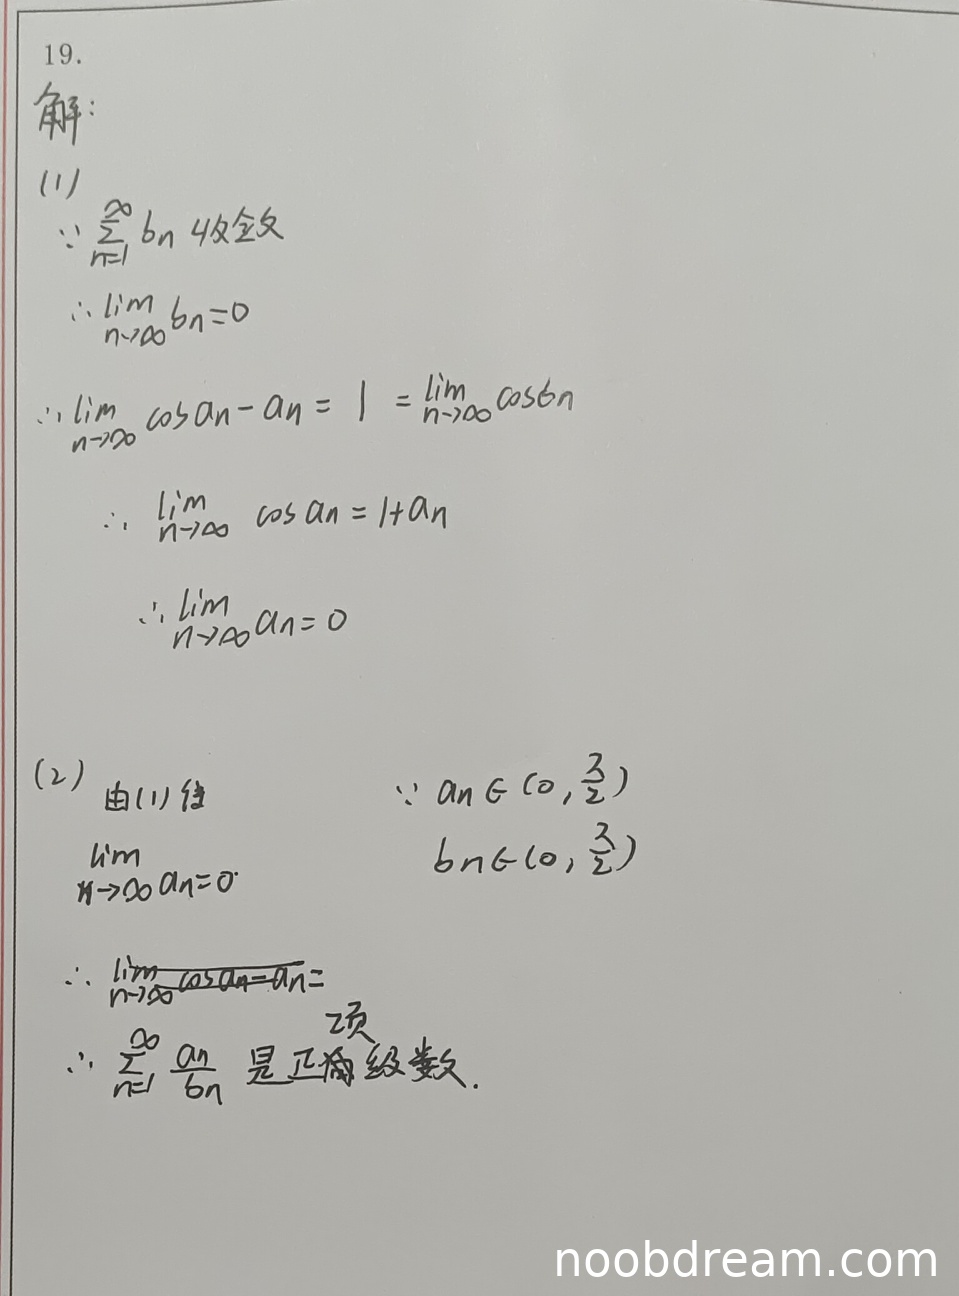 19.
解:
(1)
∵ ∑_{n=1}^{∞} bn 收敛
∴ lim_{n→∞} bn=0
∴ lim_{n→∞} cos an - an = 1 = lim_{n→∞} cos bn
∴ lim_{n→∞} cos an = 1+an
∴ lim_{n→∞} an = 0
(2) 由(1)得
lim_{n→∞} an=0
∵ an∈(0, π/2)
bn∈(0, π/2)
∴ lim_{n→∞} cos an - an =
∴ ∑_{n=1}^{∞} an/bn 是正项级数.
noobdream.com